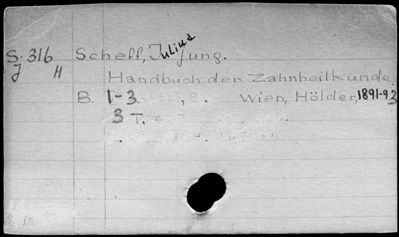 S. 316 Scheff, Julius Jung.
J H
Handbuch der Zahnheilkunde.
B. 1-3. Wien, Hölder, 1891-93
3 T.